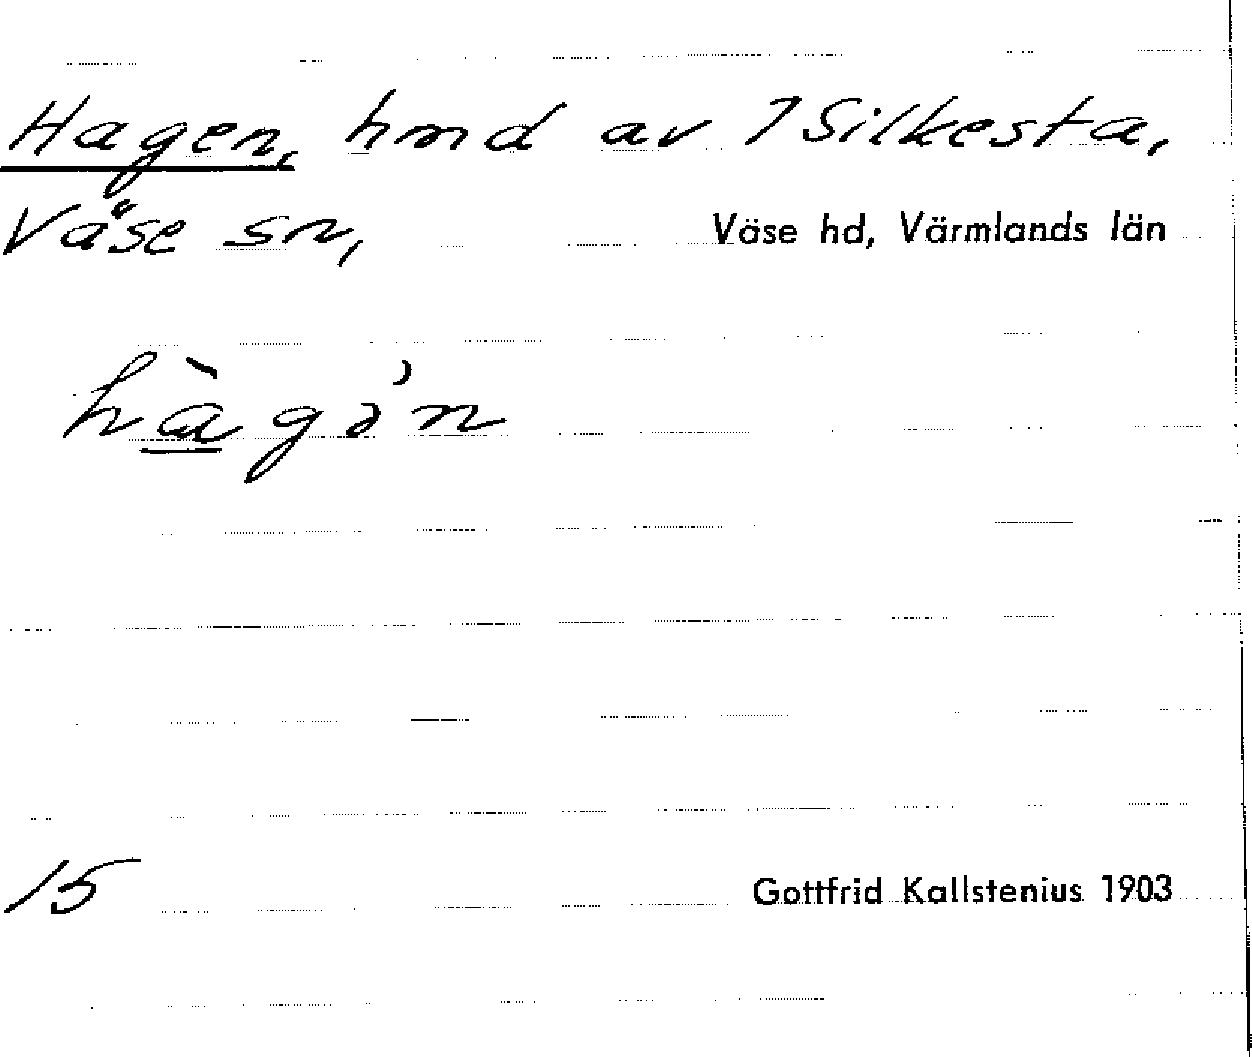 Hagen, hmd av 1 Silkesta,
Väse sn, Väse hd, Värmlands län
hàgə'n
15 Gottfrid Kallstenius 1903